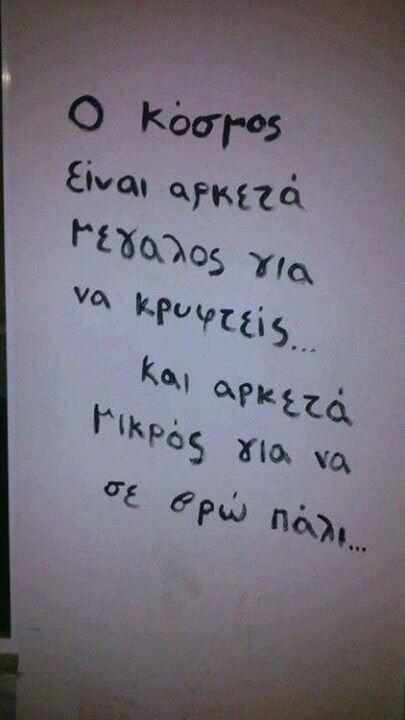 Ο κόσμος
είναι αρκετά
μεγαλος για
να κρυφτείς...
και αρκετά
μικρός για να
σε βρώ πάλι...